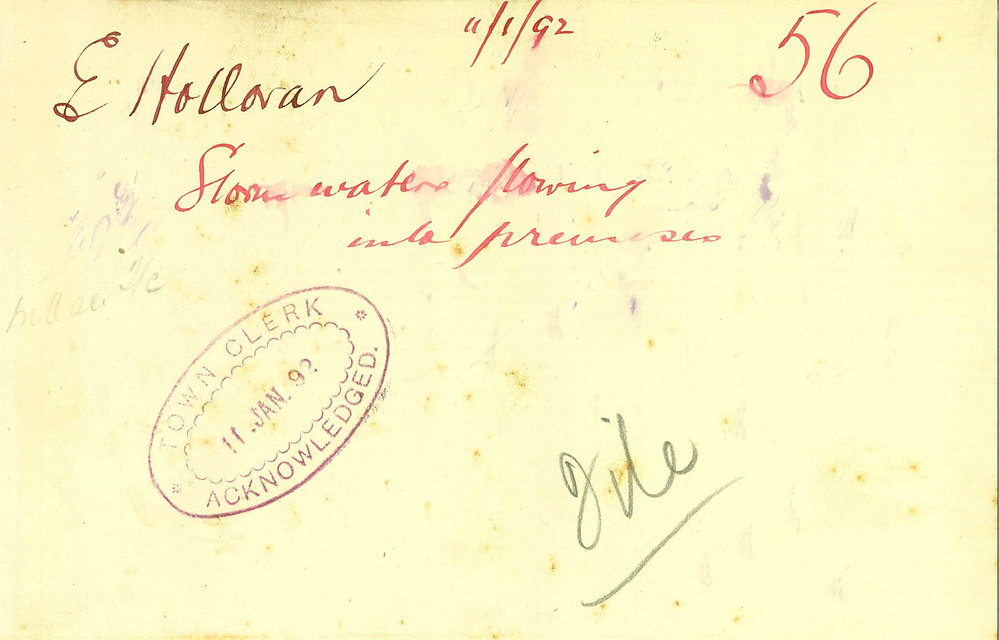 11/1/92
56
E Holloran
Storm waters flowing
into premises
TOWN CLERK
11 JAN. 92
ACKNOWLEDGED.
File